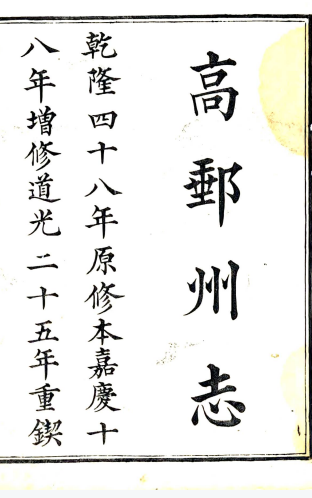 高郵州志
乾隆四十八年原修本嘉慶十
八年増修道光二十五年重鍥